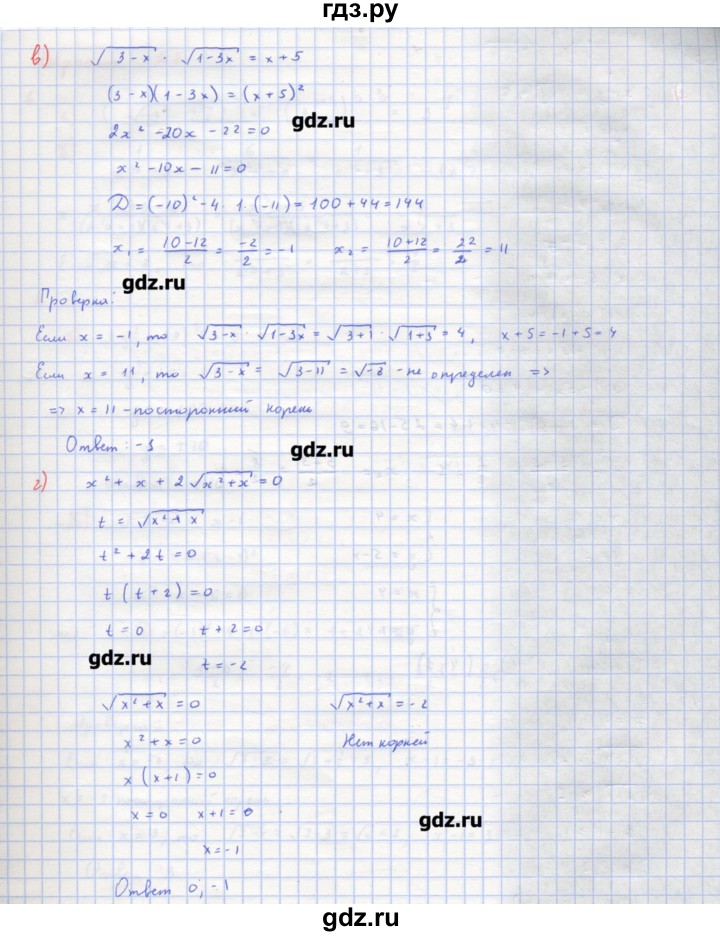 гдз.ру
в) √3-x · √1-3x = x+5
(3-x)(1-3x) = (x+5)²
gdz.ru
2x² -20x -22=0
x² -10x - 11=0
D=(-10)²-4·1·(-11)=100+44=144
x₁ = (10-12)/2 = -2/2 = -1 x₂ = (10+12)/2 = 22/2 = 11
gdz.ru
Проверка:
Если x = -1, то √3-x · √1-3x = √3+1 · √1+3 = 4, x+5=-1+5=4
Если x = 11, то √3-x = √3-11 = √-8 - не определен =>
=> x = 11 - посторонний корень
Ответ: -1
gdz.ru
г) x² + x + 2√x²+x = 0
t = √x²+x
t² + 2t = 0
t(t+2)=0
t=0 t+2=0
gdz.ru
t=-2
√x²+x = 0 √x²+x = -2
x²+x=0 Нет корней
x(x+1)=0
x=0 x+1=0
gdz.ru
x=-1
Ответ 0; -1
gdz.ru